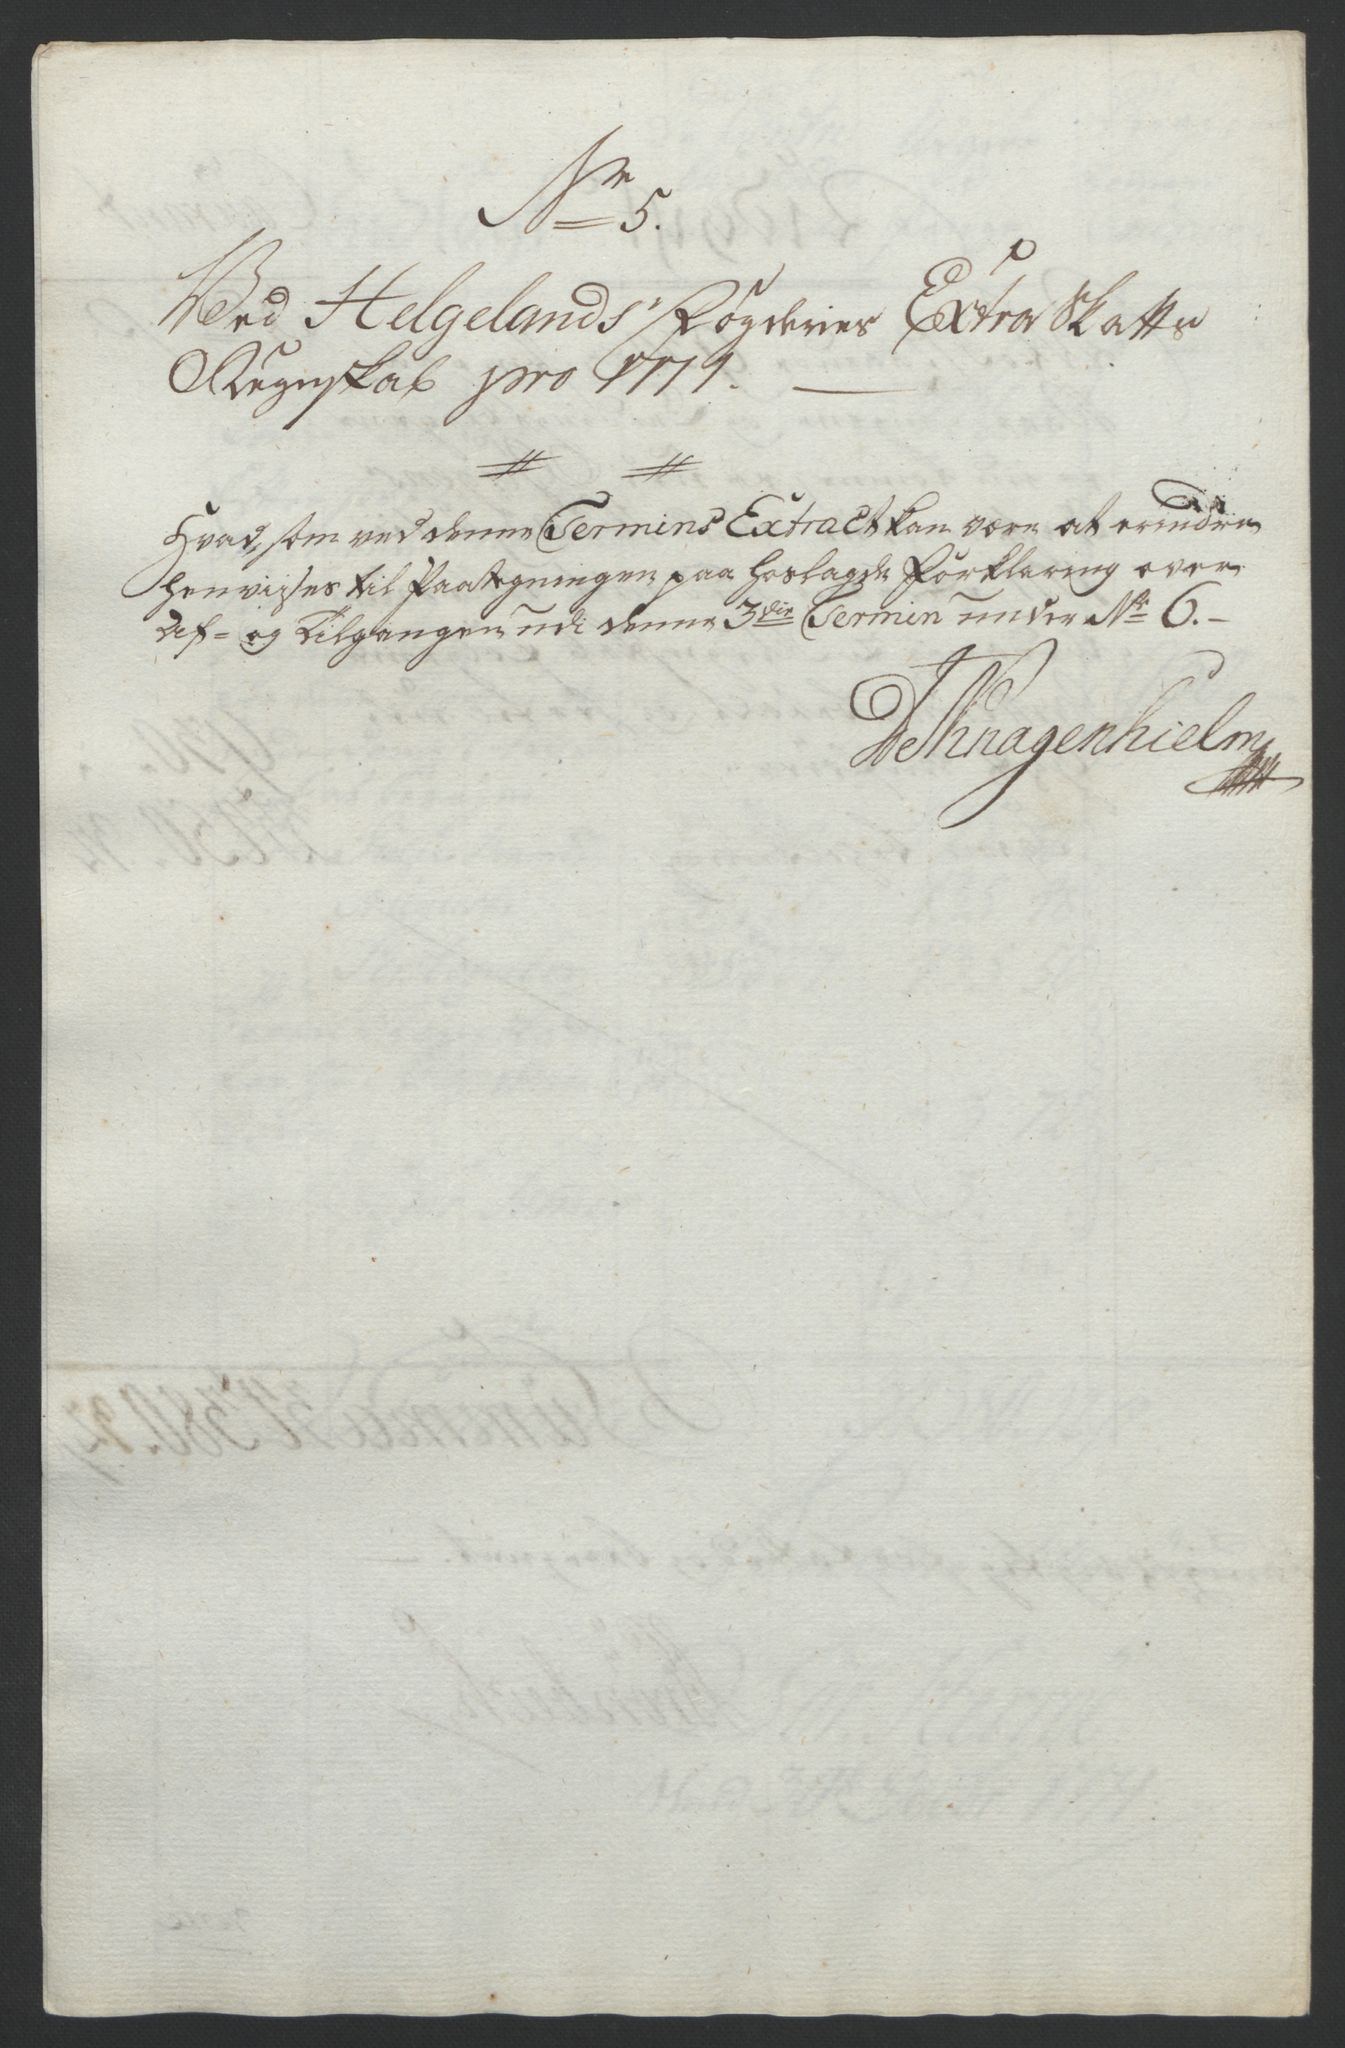 No 5.
Ved Helgelands Fogderies Extra Skatts
Regnskab pro 1771.
Hvad, som ved denne Termins Extract kan være at erindre
henvises til Paategningen paa hoslagde Forklaring over
Af- og Tilgangen udi denne 3die Termin under No 6.
de Knagenhielm